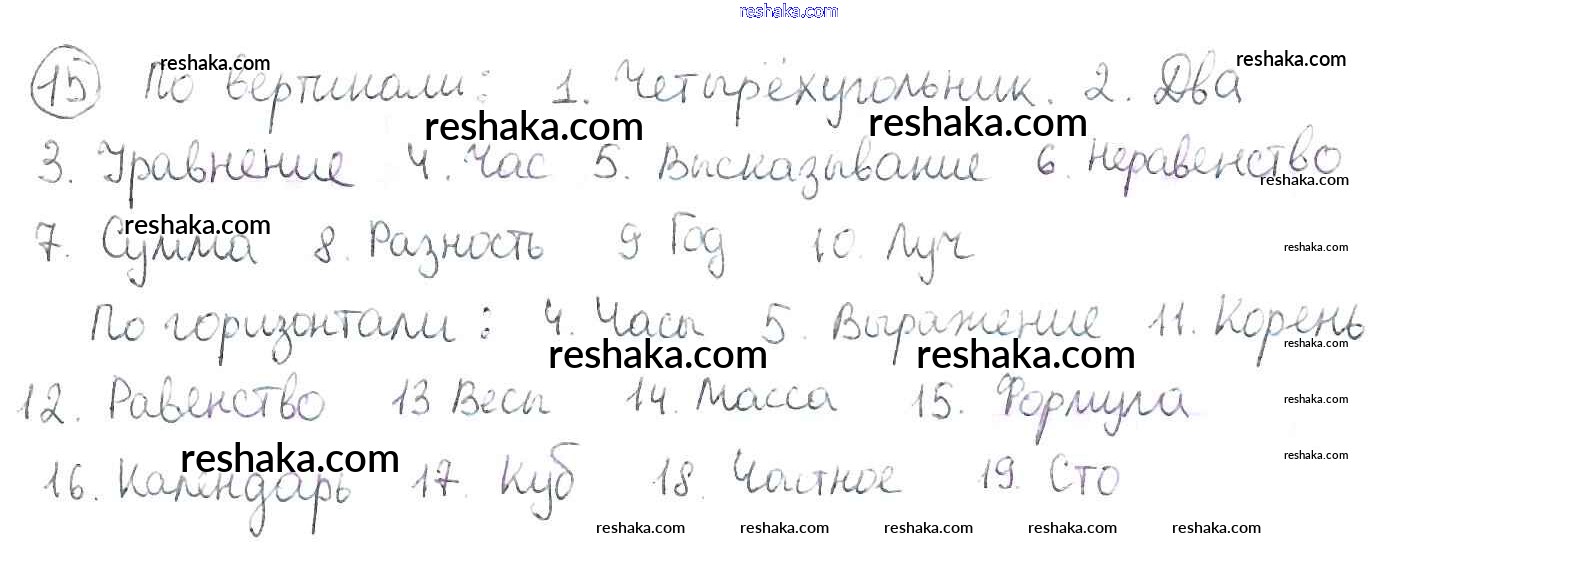 reshaka.com
15 По вертикали: 1. Четырёхугольник. 2. Два
reshaka.com reshaka.com
reshaka.com reshaka.com
3. Уравнение 4. Час 5. Высказывание 6. Неравенство
reshaka.com
7. Сумма 8. Разность 9 Год 10. Луч
reshaka.com reshaka.com
По горизонтали: 4. Часы 5. Выражение 11. Корень
reshaka.com reshaka.com reshaka.com
12. Равенство 13 Весы 14. Масса 15. Формула
reshaka.com
reshaka.com reshaka.com
16. Календарь 17. Куб 18. Частное 19. Сто
reshaka.com reshaka.com reshaka.com reshaka.com reshaka.com